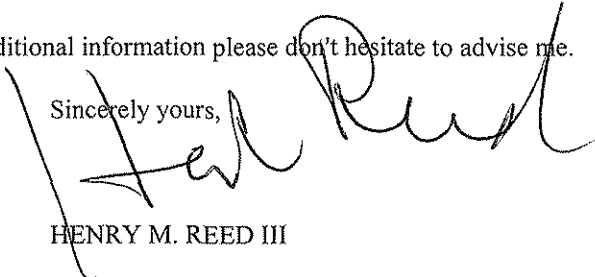 ditional information please don't hesitate to advise me.
Sincerely yours,
Reed
HENRY M. REED III